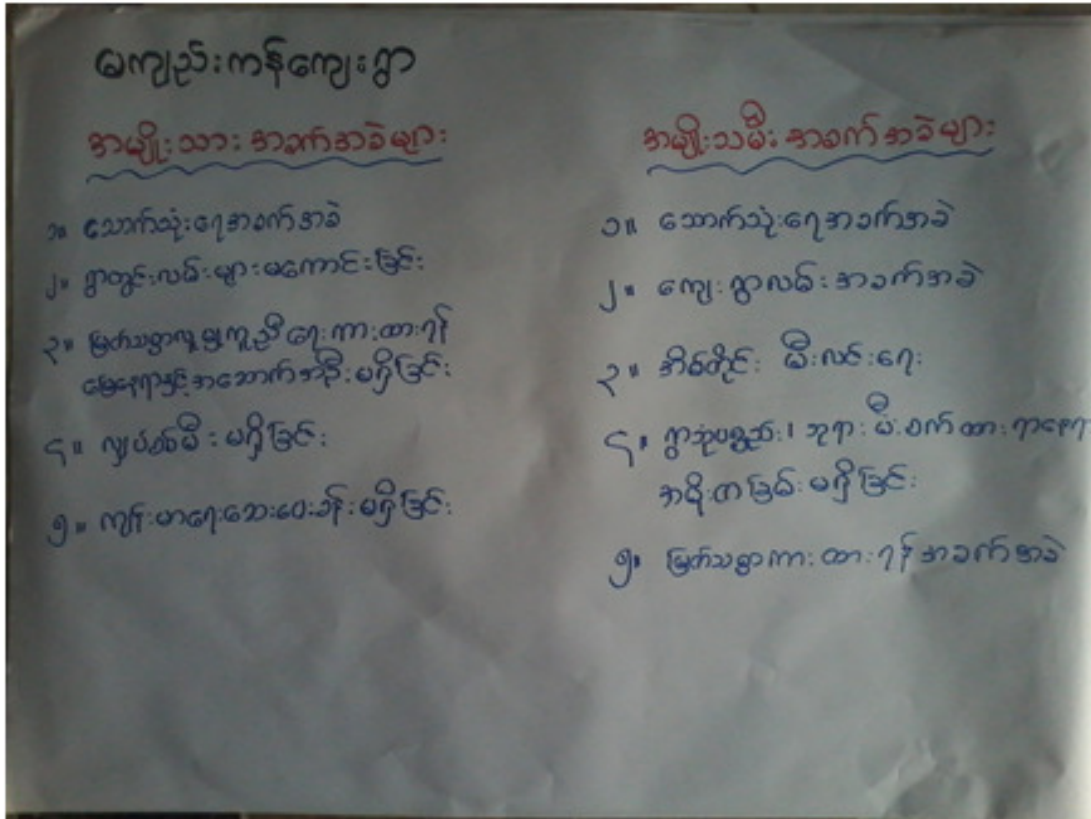 မကျည်းကန်ကျေးရွာ
အမျိုးသားအခက်အခဲများ
၁။ သောက်သုံးရေအခက်အခဲ
၂။ ရွာတွင်းလမ်းများမကောင်းခြင်း
၃။ မြတ်သစ္စာလူမှုကူညီရေးကားထားရန်
မြေနေရာနှင့်အဆောက်အဦးမရှိခြင်း
၄။ လျှပ်စစ်မီးမရှိခြင်း
၅။ ကျန်းမာရေးဆေးပေးခန်းမရှိခြင်း
အမျိုးသမီးအခက်အခဲများ
၁။ သောက်သုံးရေအခက်အခဲ
၂။ ကျေးရွာလမ်းအခက်အခဲ
၃။ အိမ်တိုင်း မီးလင်းရေး
၄။ ရွာဘုံပစ္စည်း၊ ဘုရားမီးစက်ထားရာနေရာ
အမိုးတခြမ်းမရှိခြင်း
၅။ မြတ်သစ္စာကားထားရန်အခက်အခဲ